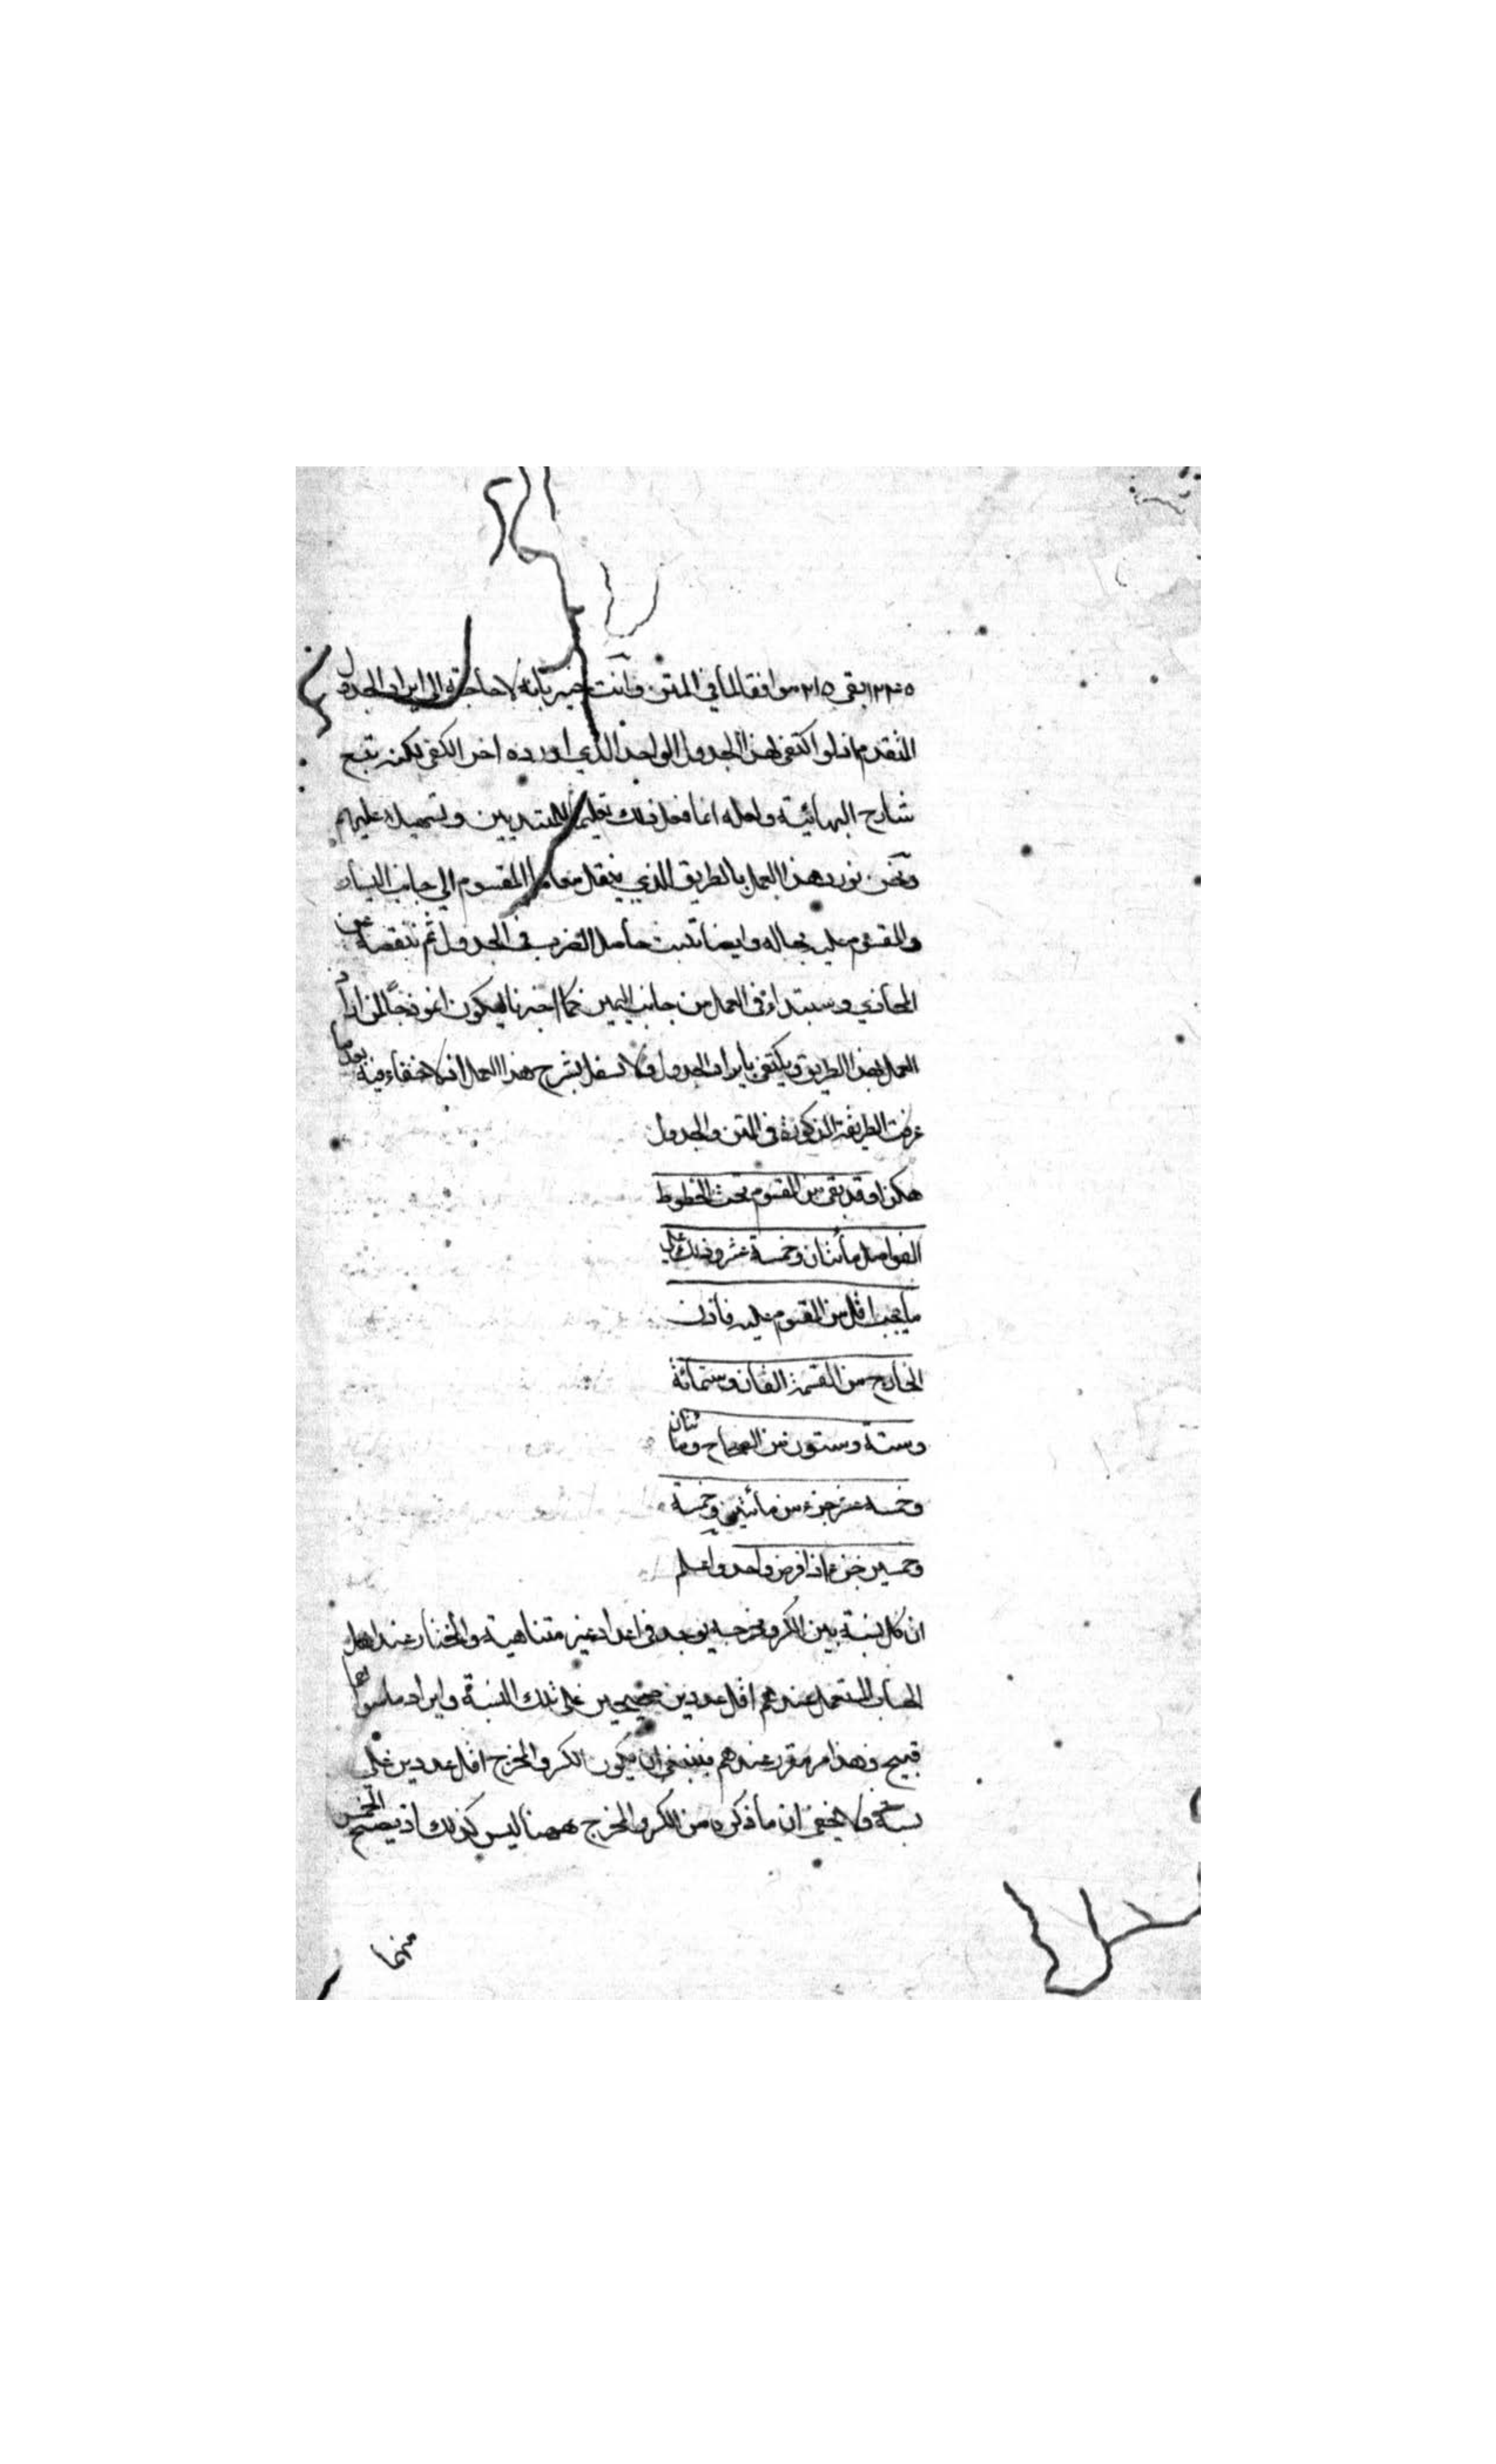 بقى ٢١٥ موافقا لما في المتن وانت خبير بانه لا حاجة الى ايراد الجدول
المتقدم اذ لو اكتفى بهذا الجدول الواحد الذي اورده اخر الكفى لكنه تبع
شارح البهائية ولعله انما فعل ذلك تعليما للمبتديين وتسهيلا عليهم
ونحن نورد هذا العمل بالطريق الذي ينقل معه المقسوم الى جانب اليسار
والمقسوم عليه بحاله وايضا تثبت حاصل الضرب في الجدول ثم تنقصه من
المحاذي وسبتداء في العمل من جانب اليمين كما اخبرنا ليكون انموذجاً لمن اراد
العمل بهذا الطريق ويكتفى بايراد الجدول ولا بشرح هذا العمل اذ لا خفاء فيه بعد ما
عرفت الطريقة المذكورة في المتن والجدول
هكذا وقد بقى من المقسوم تحت الخطوط
الفواصل مائتان وخمسة عشر وذلك على
ما يجب اقل من المقسوم عليه فاذن
الخارج من القسمة الفان وستمائة
وستة وستون من الصحاح ومائتان
وخمسة عشر جزء من مائتين وخمسة
وخمسين جزء اذا فرض واحد واعلم
ان كل نسبة بين الكسر ومخرجه يوجد في اعداد غير متناهية والمختار عند اهل
الحساب المستعمل عندهم اقل عددين صحيحين على تلك النسبة وايراد ما سواهما
قبيح وهذا امر مقرر عندهم فينبغي ان يكون الكسر والمخرج اقل عددين على
نسبة ولا يخفى ان ما ذكره من الكسر والمخرج ههنا ليس كذلك اذ يصح الخمس
منهما